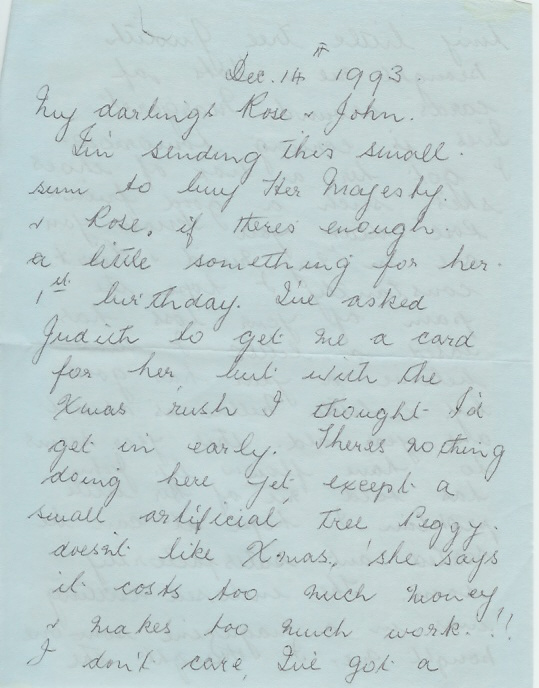 Dec. 14th 1993.
My darlings Rose & John.
I'm sending this small.
sum to buy Her Majesty.
& Rose, if theres enough.
a little something for her.
1st birthday. I've asked
Judith to get me a card
for her, but with the
Xmas rush I thought I'd
get in early. Theres nothing
doing here yet, except a
small artificial tree Peggy.
doesn't like Xmas, she says
it costs too much money
& makes too much work.!!
I don't care, I've got a